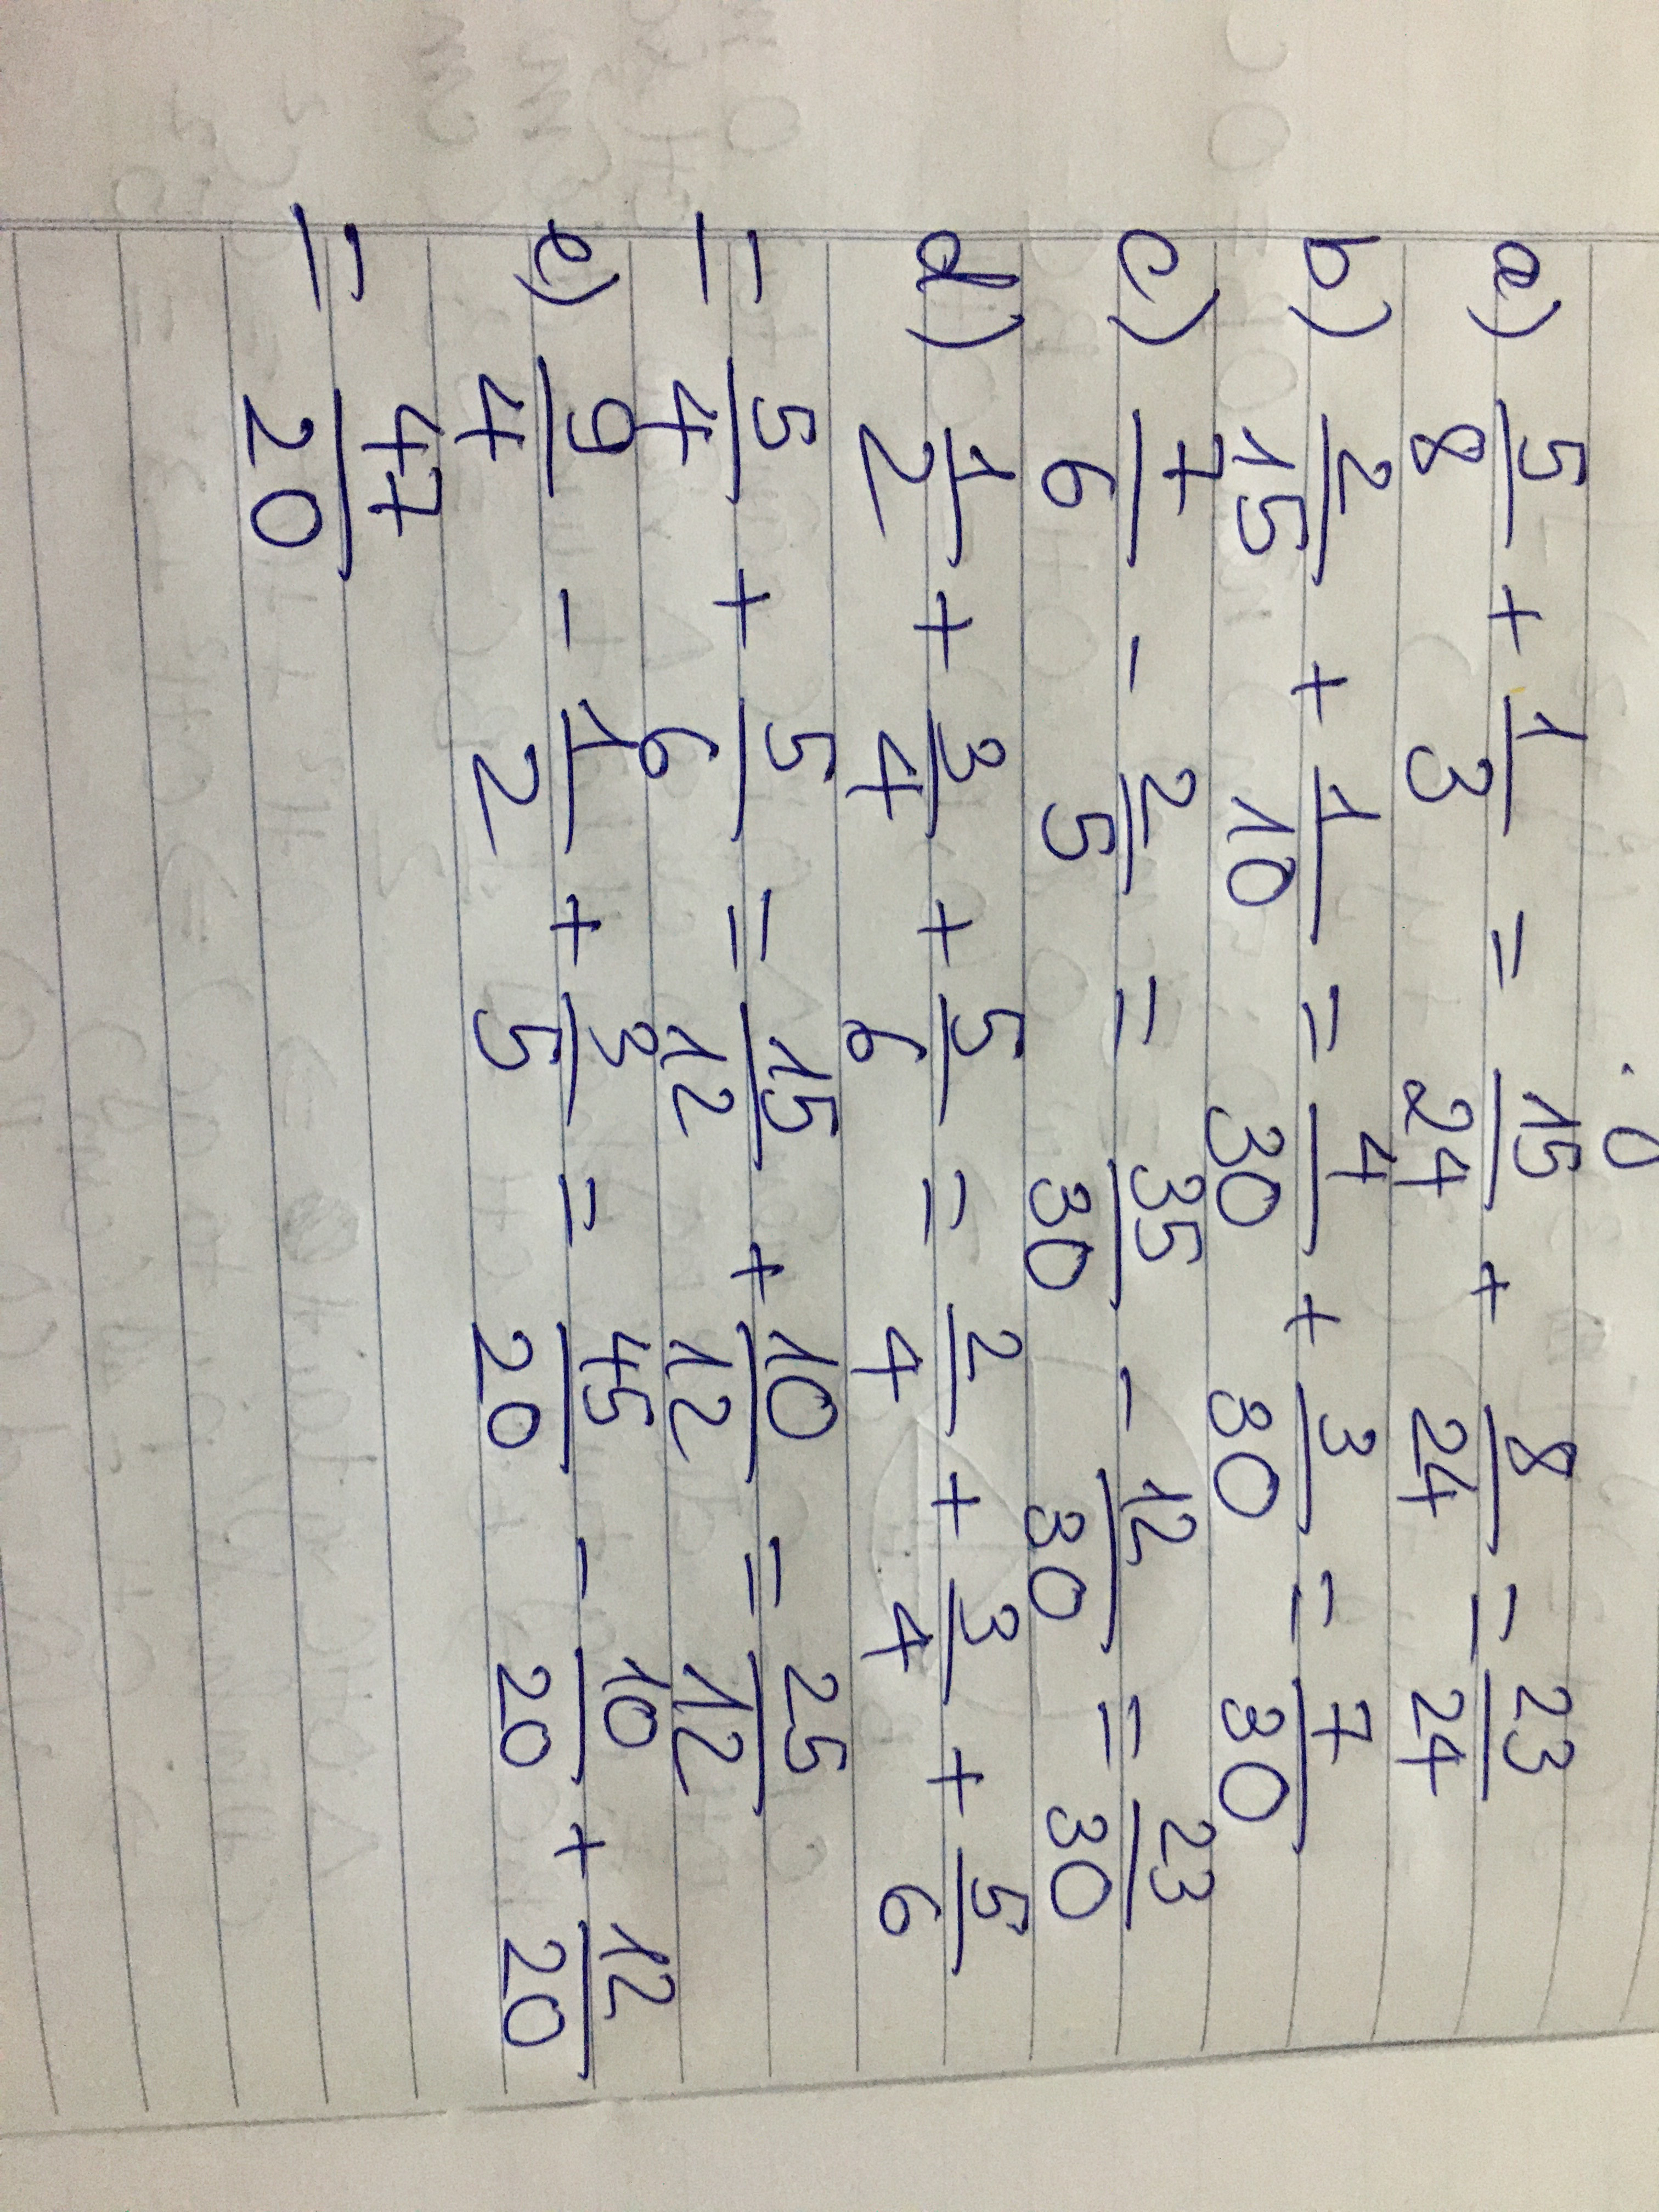 a) 5/8 + 1/3 = 15/24 + 8/24 = 23/24
b) 2/15 + 1/10 = 4/30 + 3/30 = 7/30
c) 7/6 - 2/5 = 35/30 - 12/30 = 23/30
d) 1/2 + 3/4 + 5/6 = 2/4 + 3/4 + 5/6
= 5/4 + 5/6 = 15/12 + 10/12 = 25/12
e) 9/4 - 1/2 + 3/5 = 45/20 - 10/20 + 12/20
= 47/20